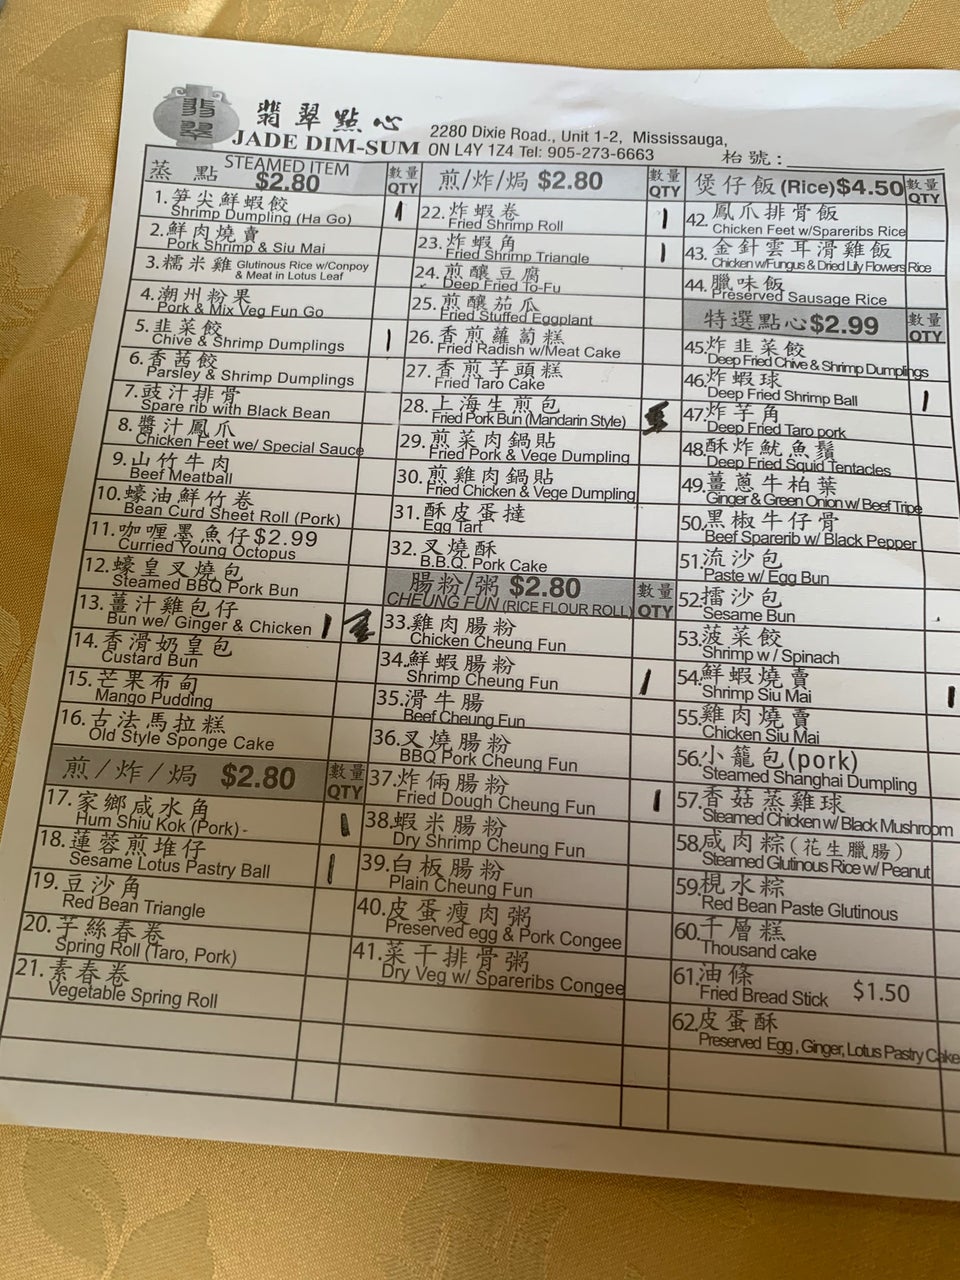 翡翠
翡翠點心
JADE DIM-SUM
2280 Dixie Road., Unit 1-2, Mississauga,
ON L4Y 1Z4 Tel: 905-273-6663
枱號:
蒸點 STEAMED ITEM $2.80 數量 QTY
1.筍尖鮮蝦餃
Shrimp Dumpling (Ha Go) 1
2.鮮肉燒賣
Pork Shrimp & Siu Mai
3.糯米雞 Glutinous Rice w/Conpoy
& Meat in Lotus Leaf
4.潮州粉果
Pork & Mix Veg Fun Go
5.韭菜餃
Chive & Shrimp Dumplings 1
6.香茜餃
Parsley & Shrimp Dumplings
7.豉汁排骨
Spare rib with Black Bean
8.醬汁鳳爪
Chicken Feet w/ Special Sauce
9.山竹牛肉
Beef Meatball
10.蠔油鮮竹卷
Bean Curd Sheet Roll (Pork)
11.咖喱墨魚仔$2.99
Curried Young Octopus
12.蠔皇叉燒包
Steamed BBQ Pork Bun
13.薑汁雞包仔
Bun w/ Ginger & Chicken 1
14.香滑奶皇包
Custard Bun
15.芒果布甸
Mango Pudding
16.古法馬拉糕
Old Style Sponge Cake
煎/炸/焗 $2.80 數量 QTY
17.家鄉咸水角
Hum Shiu Kok (Pork) - 1
18.蓮蓉煎堆仔
Sesame Lotus Pastry Ball 1
19.豆沙角
Red Bean Triangle
20.芋絲春卷
Spring Roll (Taro, Pork)
21.素春卷
Vegetable Spring Roll
煎/炸/焗 $2.80 數量 QTY
22.炸蝦卷
Fried Shrimp Roll 1
23.炸蝦角
Fried Shrimp Triangle 1
24.煎釀豆腐
Deep Fried To-Fu
25.煎釀茄瓜
Fried Stuffed Eggplant
26.香煎蘿蔔糕
Fried Radish w/Meat Cake
27.香煎芋頭糕
Fried Taro Cake
28.上海生煎包
Fried Pork Bun (Mandarin Style)
29.煎菜肉鍋貼
Fried Pork & Vege Dumpling
30.煎雞肉鍋貼
Fried Chicken & Vege Dumpling
31.酥皮蛋撻
Egg Tart
32.叉燒酥
B.B.Q. Pork Cake
腸粉/粥 $2.80 數量
CHEUNG FUN (RICE FLOUR ROLL) QTY
33.雞肉腸粉
Chicken Cheung Fun
34.鮮蝦腸粉
Shrimp Cheung Fun 1
35.滑牛腸
Beef Cheung Fun
36.叉燒腸粉
BBQ Pork Cheung Fun
37.炸倆腸粉
Fried Dough Cheung Fun 1
38.蝦米腸粉
Dry Shrimp Cheung Fun
39.白板腸粉
Plain Cheung Fun
40.皮蛋瘦肉粥
Preserved egg & Pork Congee
41.菜干排骨粥
Dry Veg w/ Spareribs Congee
煲仔飯(Rice)$4.50 數量 QTY
42.鳳爪排骨飯
Chicken Feet w/Spareribs Rice
43.金針雲耳滑雞飯
Chicken w/Fungus & Dried Lily Flowers Rice
44.臘味飯
Preserved Sausage Rice
特選點心$2.99 數量 QTY
45.炸韭菜餃
Deep Fried Chive & Shrimp Dumplings
46.炸蝦球
Deep Fried Shrimp Ball 1
47.炸芋角
Deep Fried Taro pork
48.酥炸魷魚鬚
Deep Fried Squid Tentacles
49.薑蔥牛柏葉
Ginger & Green Onion w/ Beef Tripe
50.黑椒牛仔骨
Beef Sparerib w/ Black Pepper
51.流沙包
Paste w/ Egg Bun
52.擂沙包
Sesame Bun
53.菠菜餃
Shrimp w/ Spinach
54.鮮蝦燒賣
Shrimp Siu Mai 1
55.雞肉燒賣
Chicken Siu Mai
56.小籠包(pork)
Steamed Shanghai Dumpling
57.香菇蒸雞球
Steamed Chicken w/ Black Mushroom
58.咸肉粽(花生臘腸)
Steamed Glutinous Rice w/ Peanut
59.梘水粽
Red Bean Paste Glutinous
60.千層糕
Thousand cake
61.油條
Fried Bread Stick $1.50
62.皮蛋酥
Preserved Egg, Ginger, Lotus Pastry Cake